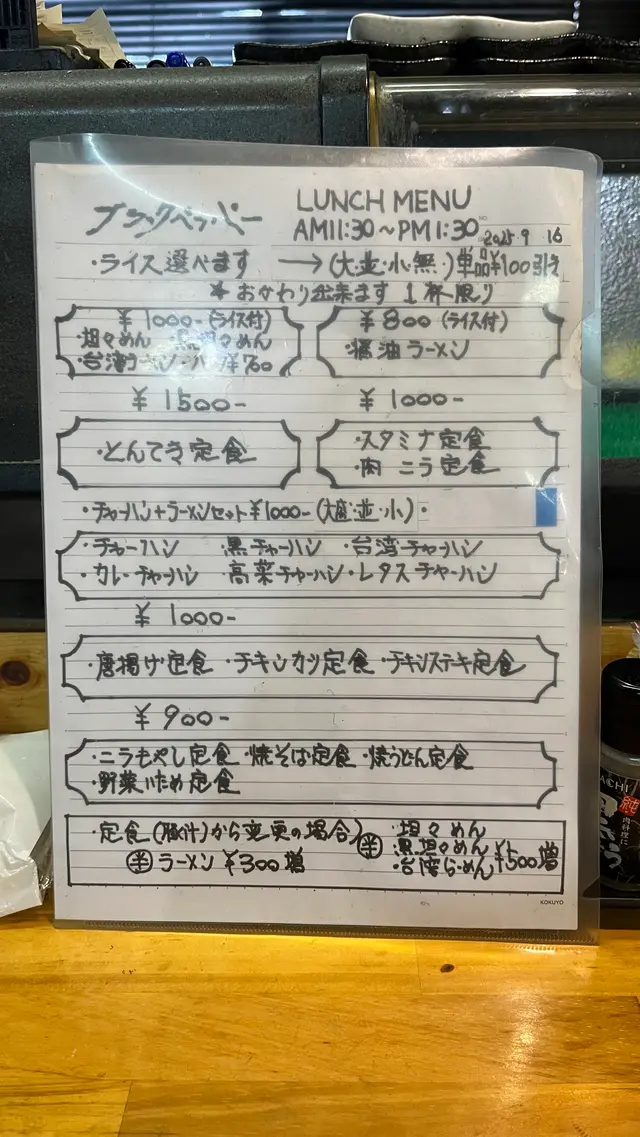 ブラックペッパー
LUNCH MENU
AM11:30～PM1:30
2025 9 16
・ライス選べます →(大・並・小・無・)単品¥100引え
* おかわり出来ます 1杯限り
¥1000-(ライス付)
・坦々めん ・黒坦々めん
・台湾ラーメン
¥800(ライス付)
・醤油ラーメン
¥1500-
・とんてき定食
¥1000-
・スタミナ定食
・肉ニラ定食
・チャーハン+ラーメンセット¥1000-(大盛・並・小)・
・チャーハン 黒チャーハン ・台湾チャーハン
・カレーチャーハン 高菜チャーハン・レタスチャーハン
¥1000-
・唐揚げ定食 ・チキンカツ定食 ・チキンステキ定食
¥900-
・ニラもやし定食 ・焼そば定食 ・焼うどん定食
・野菜いため定食
・定食(豚汁)から変更の場合)
半 ラーメン ¥300増
半
・坦々めん
・黒坦々めん
・台湾らーめん ¥500増
KOKUYO
純
肉料理に